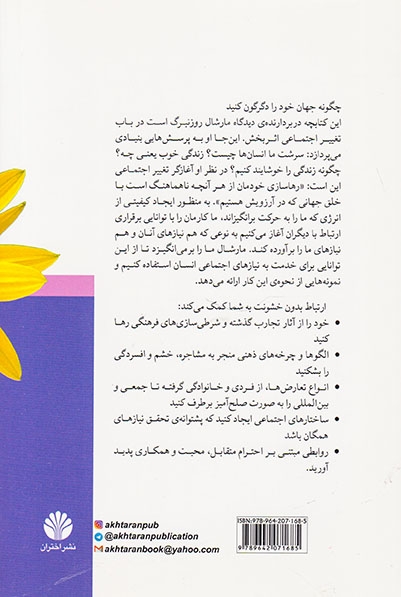 چگونه جهان خود را دگرگون کنید
این کتابچه دربردارنده‌ی دیدگاه مارشال روزنبرگ است در باب
تغییر اجتماعی اثربخش. این‌جا او به پرسش‌هایی بنیادی
می‌پردازد: سرشت ما انسان‌ها چیست؟ زندگی خوب یعنی چه؟
چگونه زندگی را خوشایند کنیم؟ در نظر او آغازگر تغییر اجتماعی
این است: «رهاسازی خودمان از هر آنچه ناهماهنگ است با
خلق جهانی که در آرزویش هستیم». به منظور ایجاد کیفیتی از
انرژی که ما را به حرکت برانگیزاند، ما کارمان را با توانایی برقراری
ارتباط با دیگران آغاز می‌کنیم به نوعی که هم نیازهای آنان و هم
نیازهای ما را برآورده کند. مارشال ما را برمی‌انگیزد تا از این
توانایی برای خدمت به نیازهای اجتماعی انسان استفاده کنیم و
نمونه‌هایی از نحوه‌ی این کار ارائه می‌دهد.
ارتباط بدون خشونت به شما کمک می‌کند:
• خود را از آثار تجارب گذشته و شرطی‌سازی‌های فرهنگی رها
کنید
• الگوها و چرخه‌های ذهنی منجر به مشاجره، خشم و افسردگی
را بشکنید
• انواع تعارض‌ها، از فردی و خانوادگی گرفته تا جمعی و
بین‌المللی را به صورت صلح‌آمیز برطرف کنید
• ساختارهای اجتماعی ایجاد کنید که پشتوانه‌ی تحقق نیازهای
همگان باشد
• روابطی مبتنی بر احترام متقابل، محبت و همکاری پدید
آورید.
akhtaranpub
@akhtaranpublication
akhtaranbook@yahoo.com
ISBN:978-964-207-168-5
9789642071685
نشر اختران